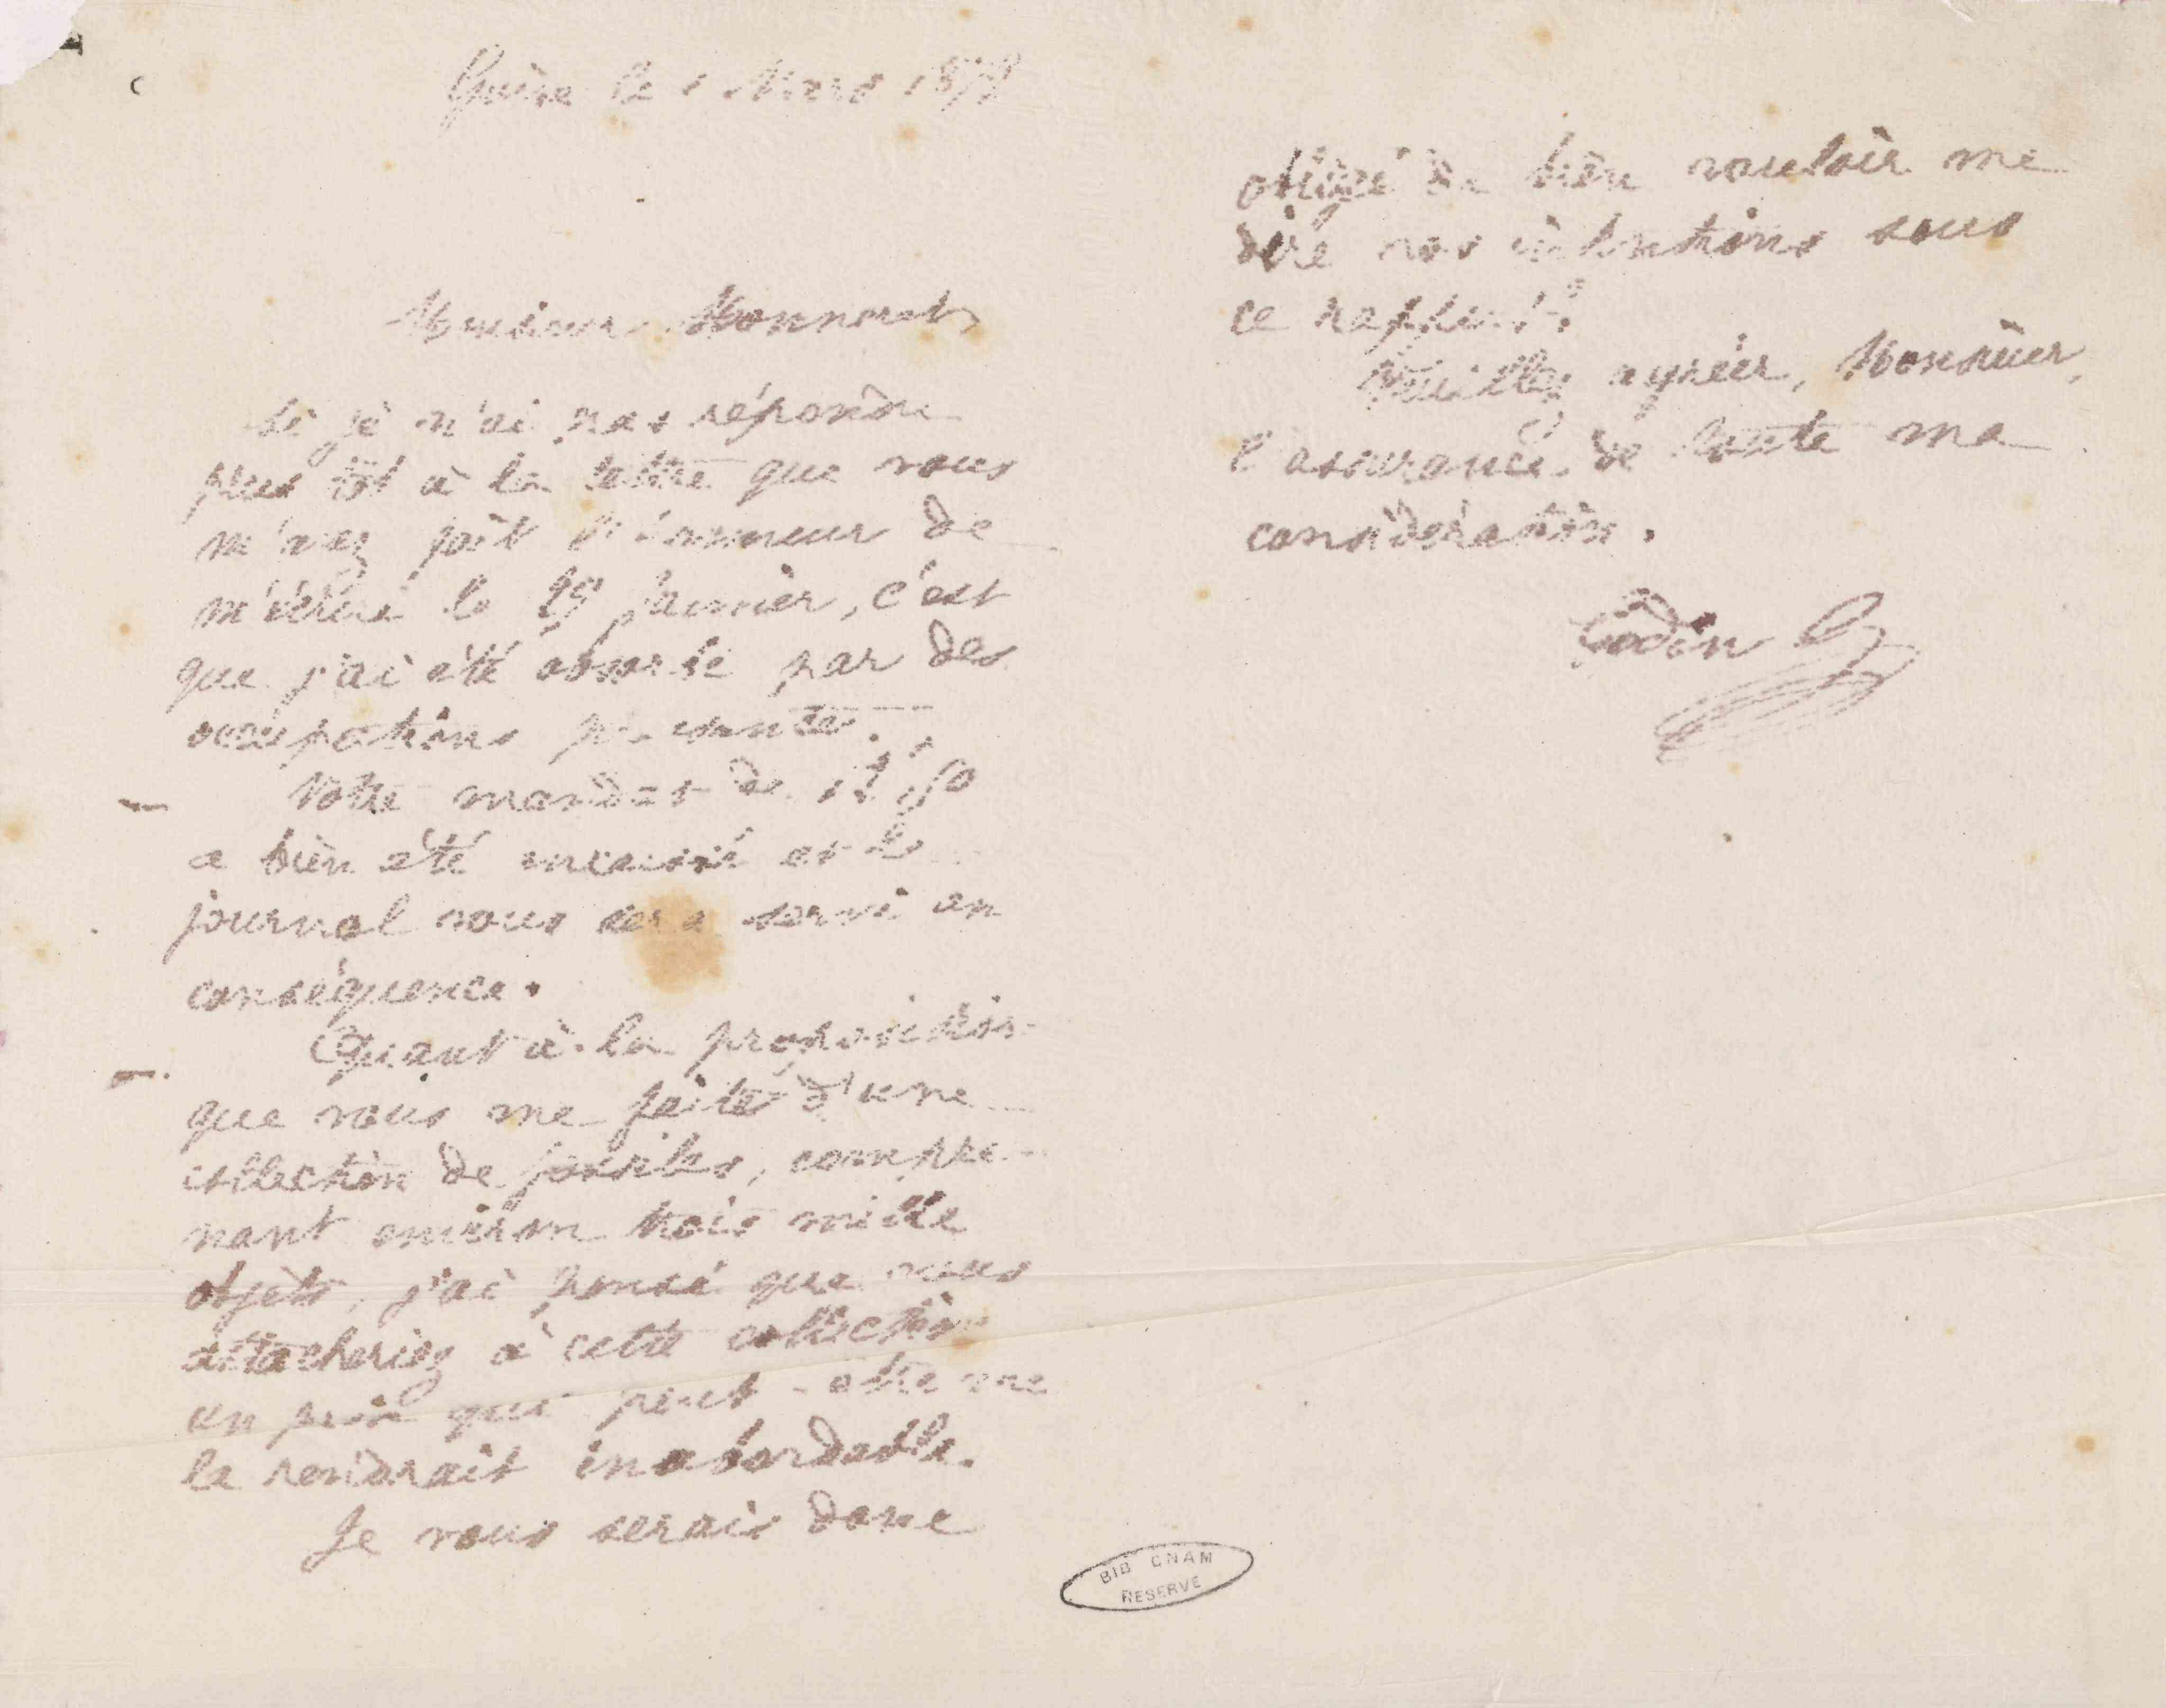 Guise le 1 Mars 1878
Monsieur Monnerot
Si je n'ai pas répondu
plus tôt à la lettre que vous
m'avez fait l'honneur de
m'écrire le 29 Janvier, c'est
que j'ai été absorbé par des
occupations pressantes.
Votre mandat de
a bien été encaissé et le
journal vous sera servi en
conséquence.
Quant à la proposition
que vous me faites d'une
collection de fossiles, compre-
nant environ trois mille
objets, j'ai pensé que vous
attacheriez à cette collection
un prix qui peut-être me
la rendrait inabordable.
Je vous serais donc
obligé de bien vouloir me
dire vos intentions sous
ce rapport.
Veuillez agréer, Monsieur,
l'assurance de toute ma
considération.
Godin
BIB CNAM
RESERVE